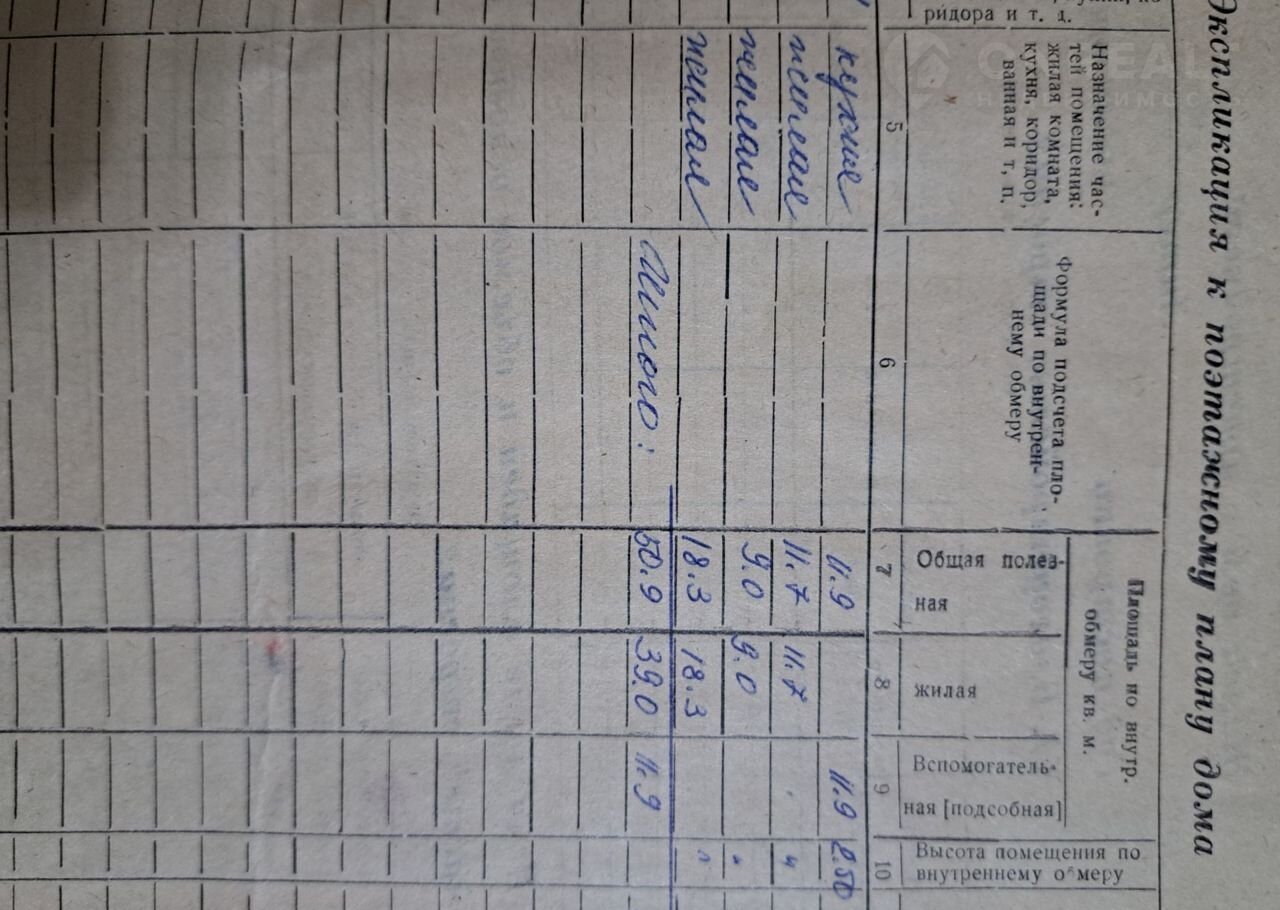 Экспликация к поэтажному плану дома
ридора и т. д.
Назначение час-
тей помещения:
жилая комната,
кухня, коридор,
ванная и т, п.
Формула подсчета пло-
щади по внутрен-
нему обмеру
Площадь по внутр.
обмеру кв. м.
Общая полез-
ная
жилая
Вспомогатель-
ная [подсобная]
Высота помещения по
внутреннему обмеру
5 6 7 8 9 10
кухня 11.9 11.9 2.50
жилая 11.7 11.7 "
жилая 9.0 9.0 "
жилая 18.3 18.3 "
Итого: 50.9 39.0 11.9